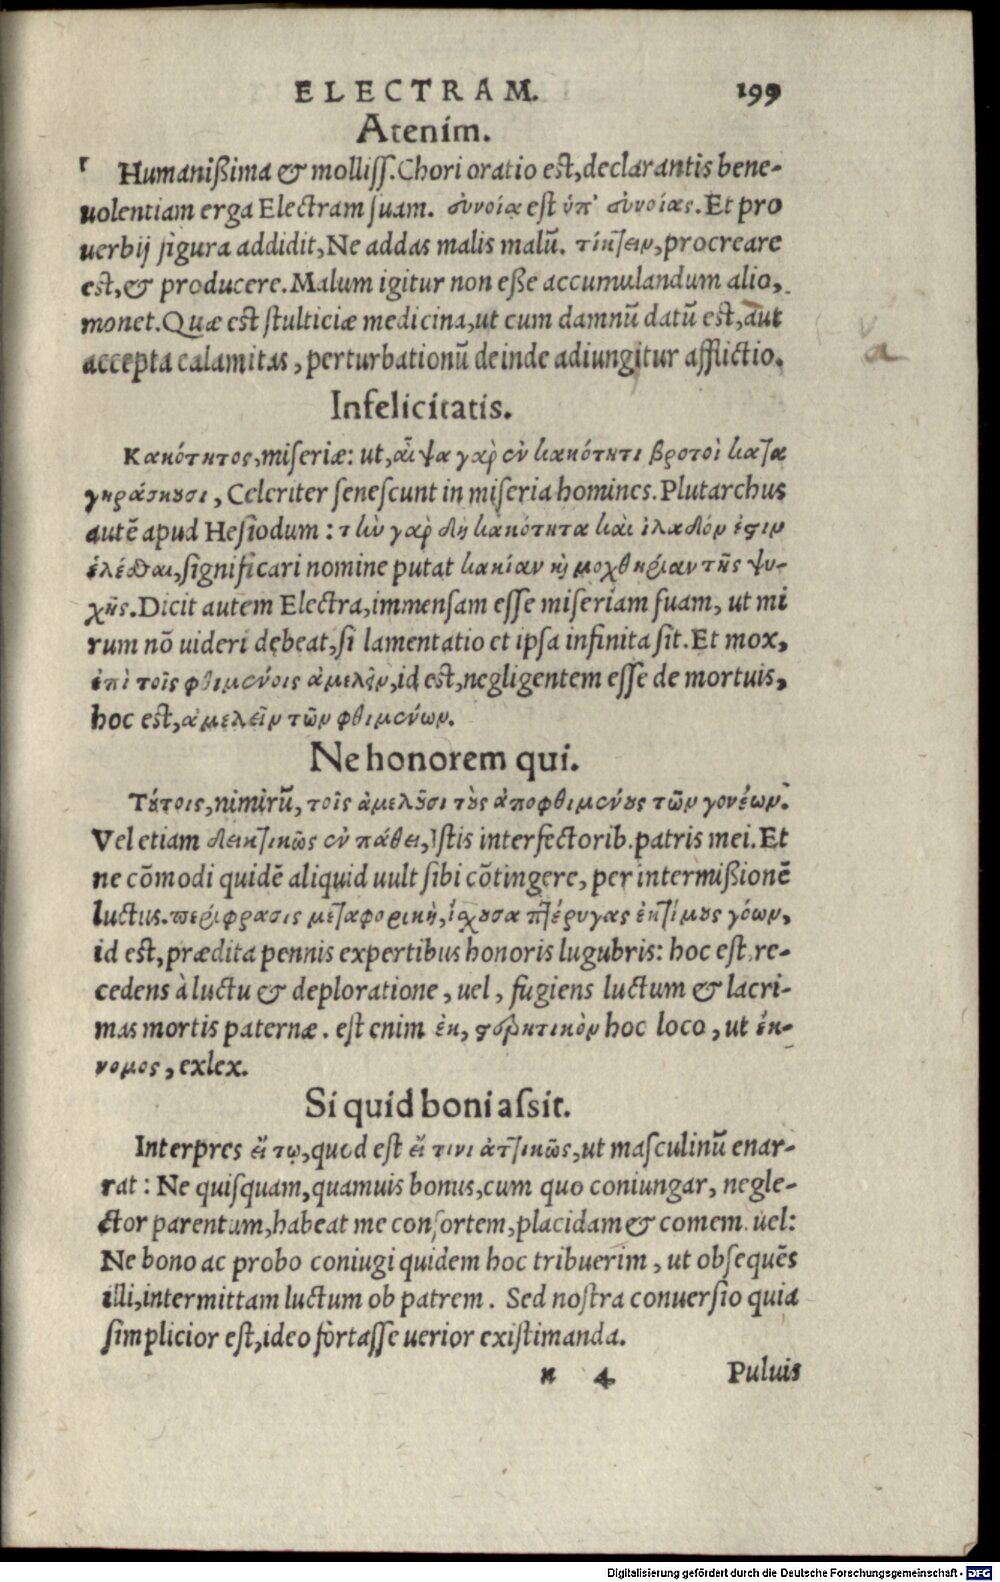 ELECTRAM. 199
Atenim.
Humanißima & molliss. Chori oratio est, declarantis bene-
uolentiam erga Electram suam. συνοίᾳ est ὑπ' συνοίας. Et pro
uerbij figura addidit, Ne addas malis malū. τίκτειν, procreare
est, & producere. Malum igitur non eße accumulandum alio,
monet. Quæ est stulticiæ medicina, ut cum damnū datū est, aut
accepta calamitas, perturbationū deinde adiungitur afflictio.
Infelicitatis.
Κακότητος, miseriæ: ut, αἶψα γὰρ ἐν κακότητι βροτοὶ κατα
γηράσκουσι, Celeriter senescunt in miseria homines. Plutarchus
autē apud Hesiodum: τὴν γὰρ δὴ κακότητα καὶ ἰλαδόν ἐστιν
ἑλέσθαι, significari nomine putat κακίαν καὶ μοχθηρίαν τῆς ψυ-
χῆς. Dicit autem Electra, immensam esse miseriam suam, ut mi
rum nō uideri debeat, si lamentatio et ipsa infinita sit. Et mox,
ἐπὶ τοῖς φθιμένοις ἀμελεῖν, id est, negligentem esse de mortuis,
hoc est, ἀμελεῖν τῶν φθιμένων.
Ne honorem qui.
Τούτοις, nimirū, τοῖς ἀμελοῦσι τοὺς ἀποφθιμένους τῶν γονέων.
Vel etiam δεικτικῶς ἐν πάθει, Istis interfectorib. patris mei. Et
ne cōmodi quidē aliquid uult sibi cōtingere, per intermißionē
luctus. περίφρασις μεταφορικὴ, ἴσχουσα πτέρυγας ἐκτίμους γόων,
id est, prædita pennis expertibus honoris lugubris: hoc est, re-
cedens à luctu & deploratione, uel, fugiens luctum & lacri-
mas mortis paternæ. est enim ἐκ, στερητικὸν hoc loco, ut ἔκ-
νομος, exlex.
Si quid boni assit.
Interpres εἴ τῳ, quod est εἴ τινι ἀττικῶς, ut masculinū enar-
rat: Ne quisquam, quamuis bonus, cum quo coniungar, negle-
ctor parentum, habeat me consortem, placidam & comem. uel:
Ne bono ac probo coniugi quidem hoc tribuerim, ut obsequēs
illi, intermittam luctum ob patrem. Sed nostra conuersio quia
simplicior est, ideo fortasse uerior existimanda.
n 4 Puluis
Digitalisierung gefördert durch die Deutsche Forschungsgemeinschaft - DFG